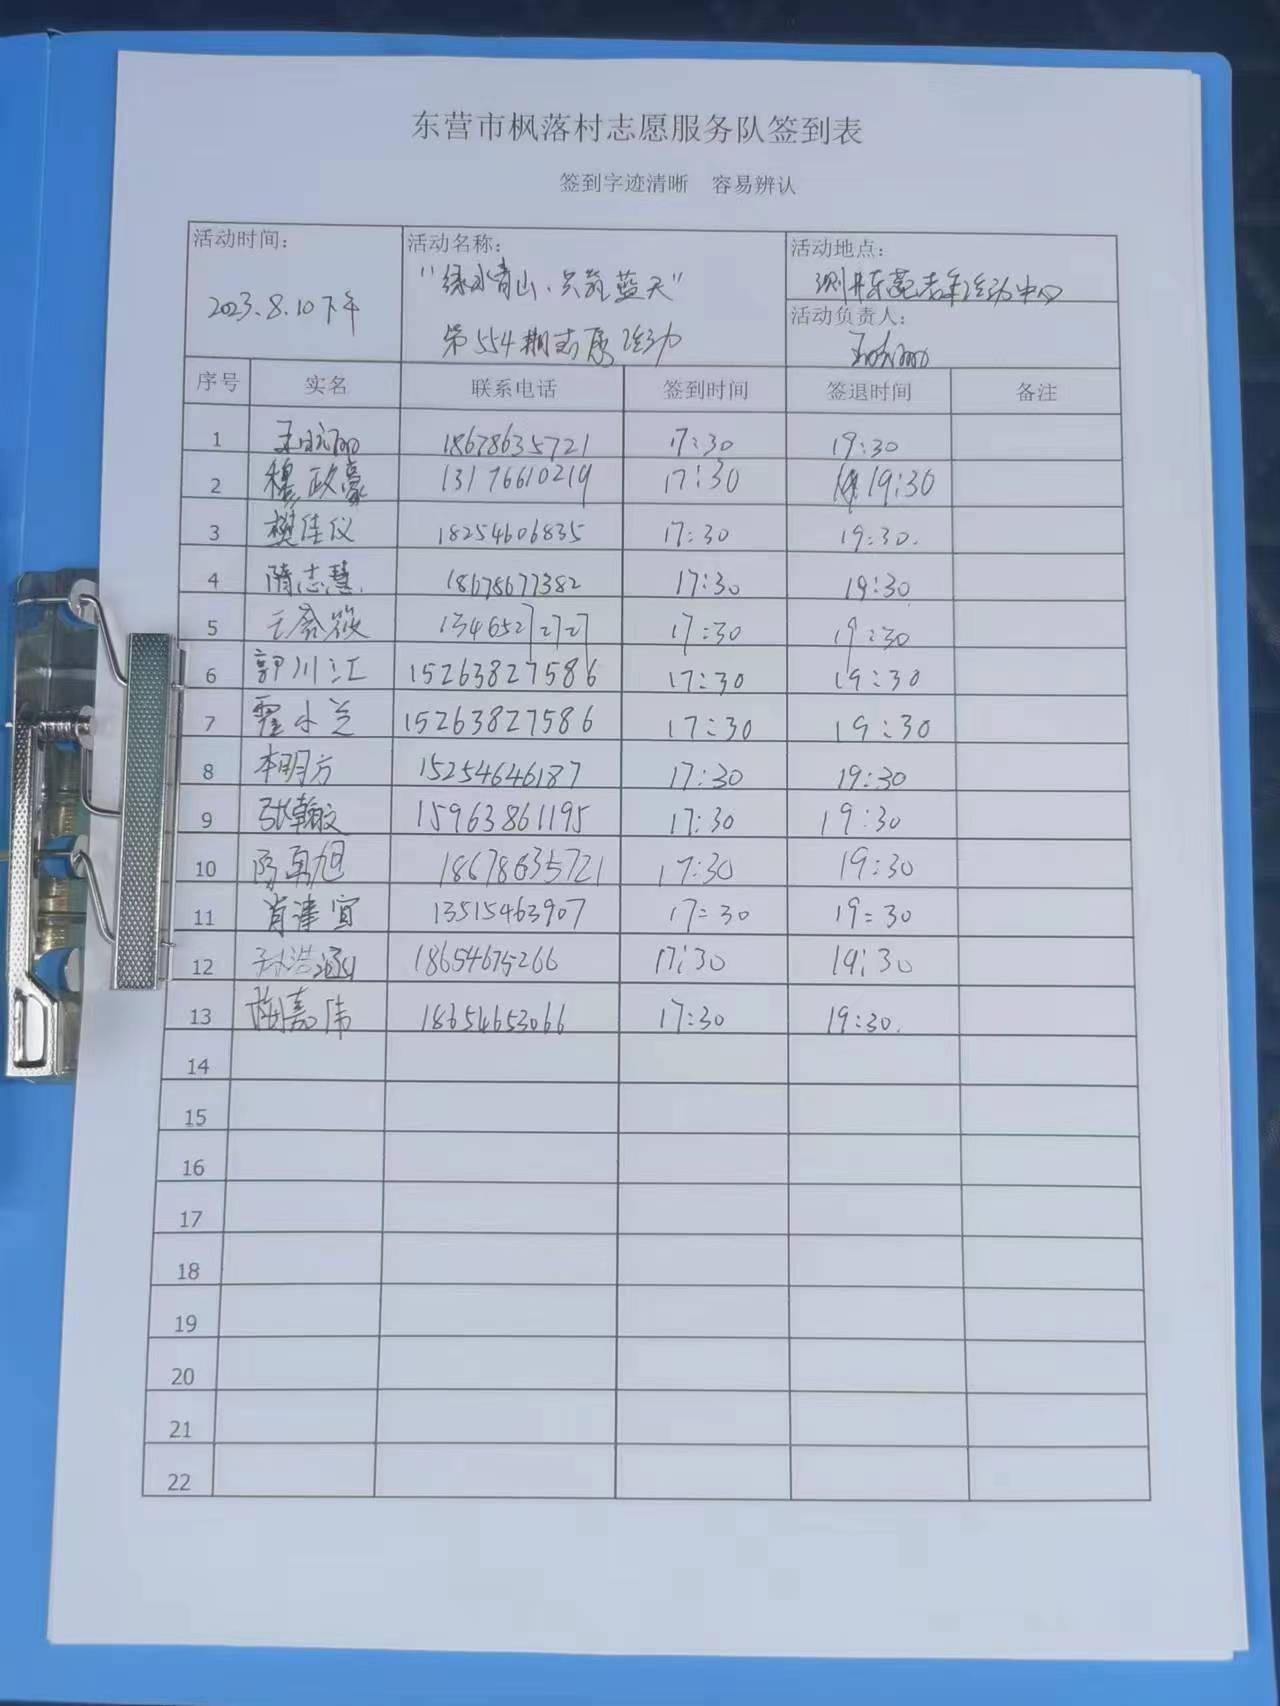 东营市枫落村志愿服务队签到表
签到字迹清晰 容易辨认
活动时间:
2023.8.10下午
活动名称:
"绿水青山、共筑蓝天"
第554期志愿活动
活动地点:
测井东苑老年活动中心
活动负责人:
序号 实名 联系电话 签到时间 签退时间 备注
1 18678635721 17:30 19:30
2 穆政豪 13176610219 17:30 19:30
3 樊佳仪 18254606835 17:30 19:30.
4 隋志慧 18678677382 17:30 19:30
5 13465272727 17:30 19:30
6 郭川江 15263827586 17:30 19:30
7 霍小芝 15263827586 17:30 19:30
8 李明方 15254646187 17:30 19:30
9 张翰文 15963861195 17:30 19:30
10 18678635721 17:30 19:30
11 肖津宜 13515463907 17:30 19:30
12 孙浩涵 18654675266 17:30 19:30
13 梅嘉伟 18654653066 17:30 19:30.
14
15
16
17
18
19
20
21
22